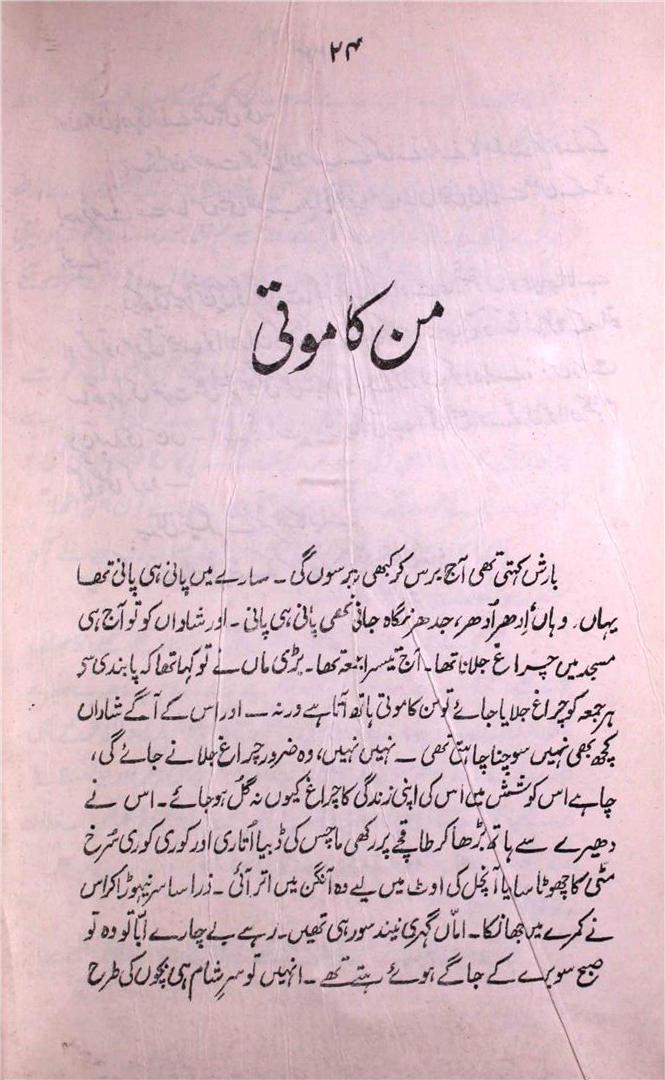 ۲۴
من کا موتی
بارش کہتی تھی آج برس کر کبھی نہ برسوں گی ۔ سارے میں پانی ہی پانی تھا
یہاں، وہاں اِدھر اُدھر، جدھر نگاہ جاتی تھی پانی ہی پانی ۔ اور شاداں کو تو آج ہی
مسجد میں چراغ جلانا تھا ۔ آج تیسرا جمعہ تھا ۔ بڑی ماں نے تو کہا تھا کہ پابندی سے
ہر جمعہ کو چراغ جلایا جائے تو من کا موتی ہاتھ آتا ہے ورنہ ــ اور اس کے آگے شاداں
کچھ بھی نہیں سوچنا چاہتی تھی ــ نہیں نہیں، وہ ضرور چراغ جلانے جائے گی،
چاہے اس کوشش میں اس کی اپنی زندگی کا چراغ کیوں نہ گل ہو جائے ۔ اس نے
دھیرے سے ہاتھ بڑھا کر طاقچے پر رکھی ماچس کی ڈبیا اُتاری اور کوری کوری سُرخ
مٹی کا چھوٹا سا دیا آنچل کی اوٹ میں لیے وہ آنگن میں اتر آئی ۔ ذرا سا سر نیہوڑا کر اس
نے کمرے میں جھانکا ۔ امّاں گہری نیند سو رہی تھیں ۔ رہے بے چارے ابّا تو وہ تو
صبح سویرے کے جاگے ہوئے ہوتے تھے ۔ انہیں تو سرِ شام ہی بچوں کی طرح